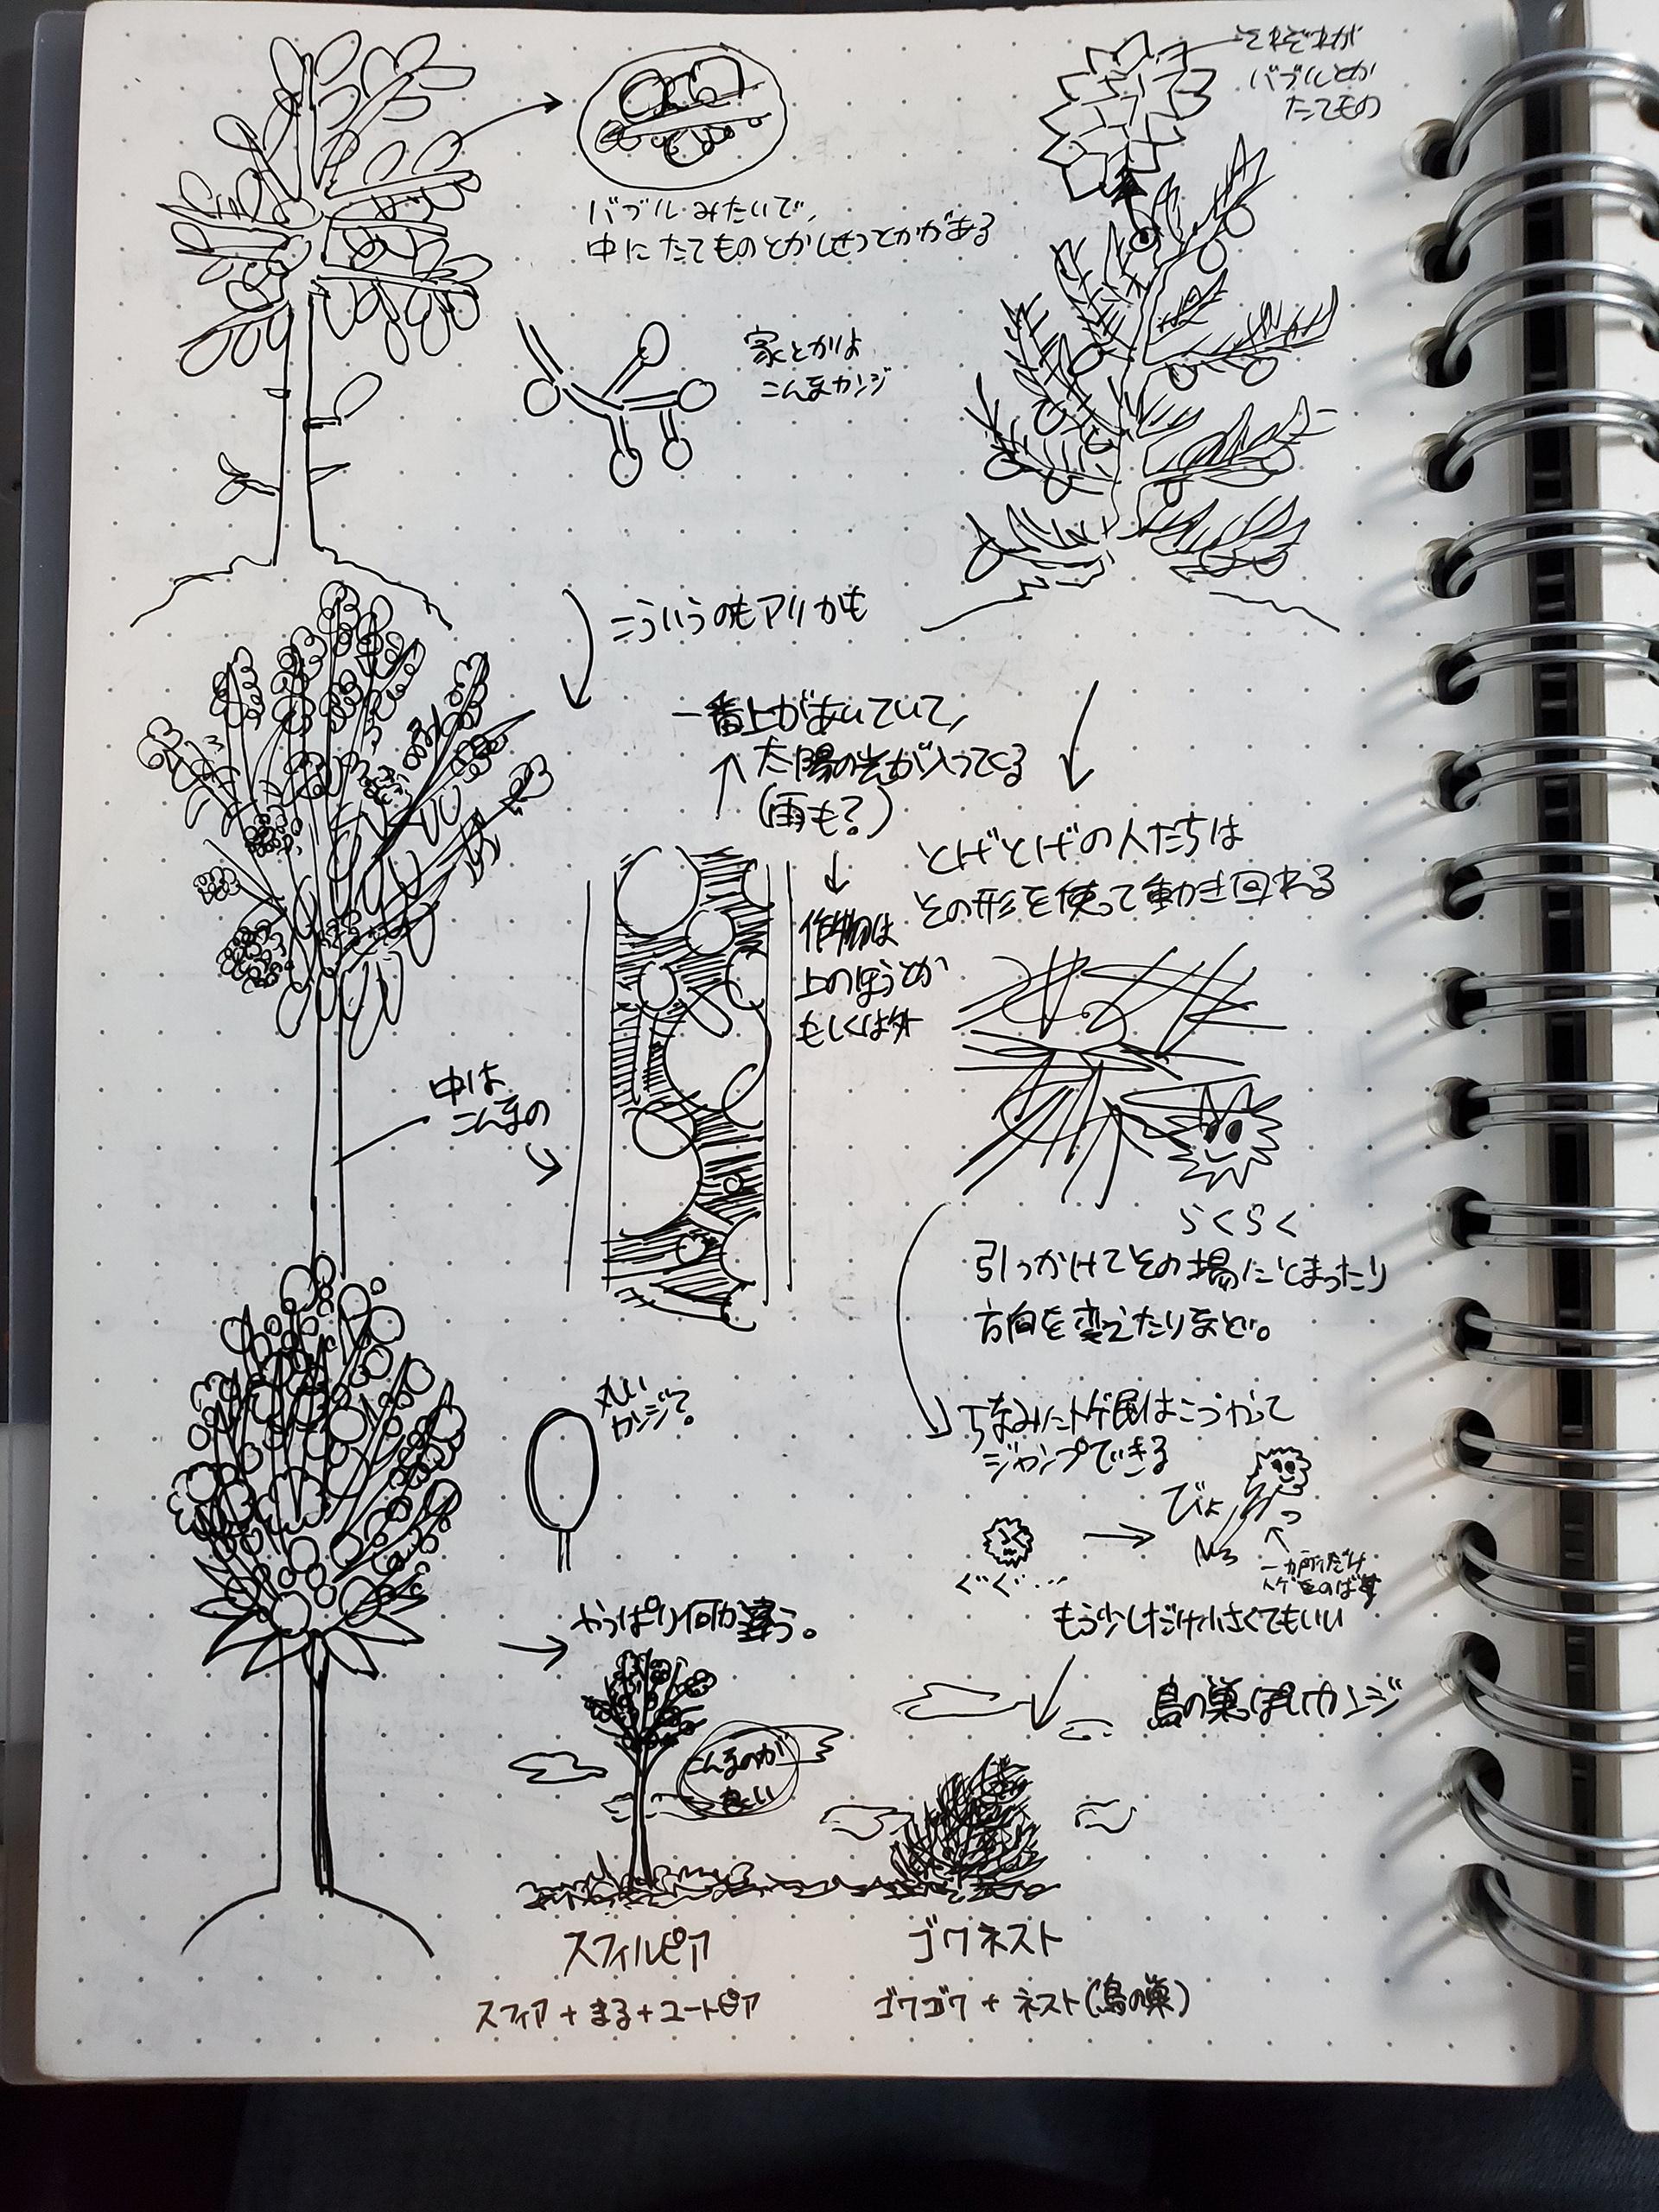 それぞれが
バブルとか
たてもの
バブルみたいで、
中にたてものとかしせつとかがある
家とかは
こんなカンジ
こういうのもアリかも
一番上があいていて、
↑太陽の光が入ってくる
(雨も?)
作物は
上のほうとか
もしくは外
とげとげの人たちは
その形を使って動き回れる
中は
こんなの
らくらく
引っかけてその場にとまったり
方向を変えたりなど。
丸い
カンジで?
ちなみにトゲ民はこうやって
ジャンプできる
びょーっ
ぐぐぐ…
一か所だけ
トゲをのばす
もう少しだけ小さくてもいい
やっぱり何か違う。
鳥の巣っぽいカンジ
こんなのが
良い
スフィルピア
ゴワネスト
スフィア+まる+ユートピア
ゴワゴワ+ネスト(鳥の巣)